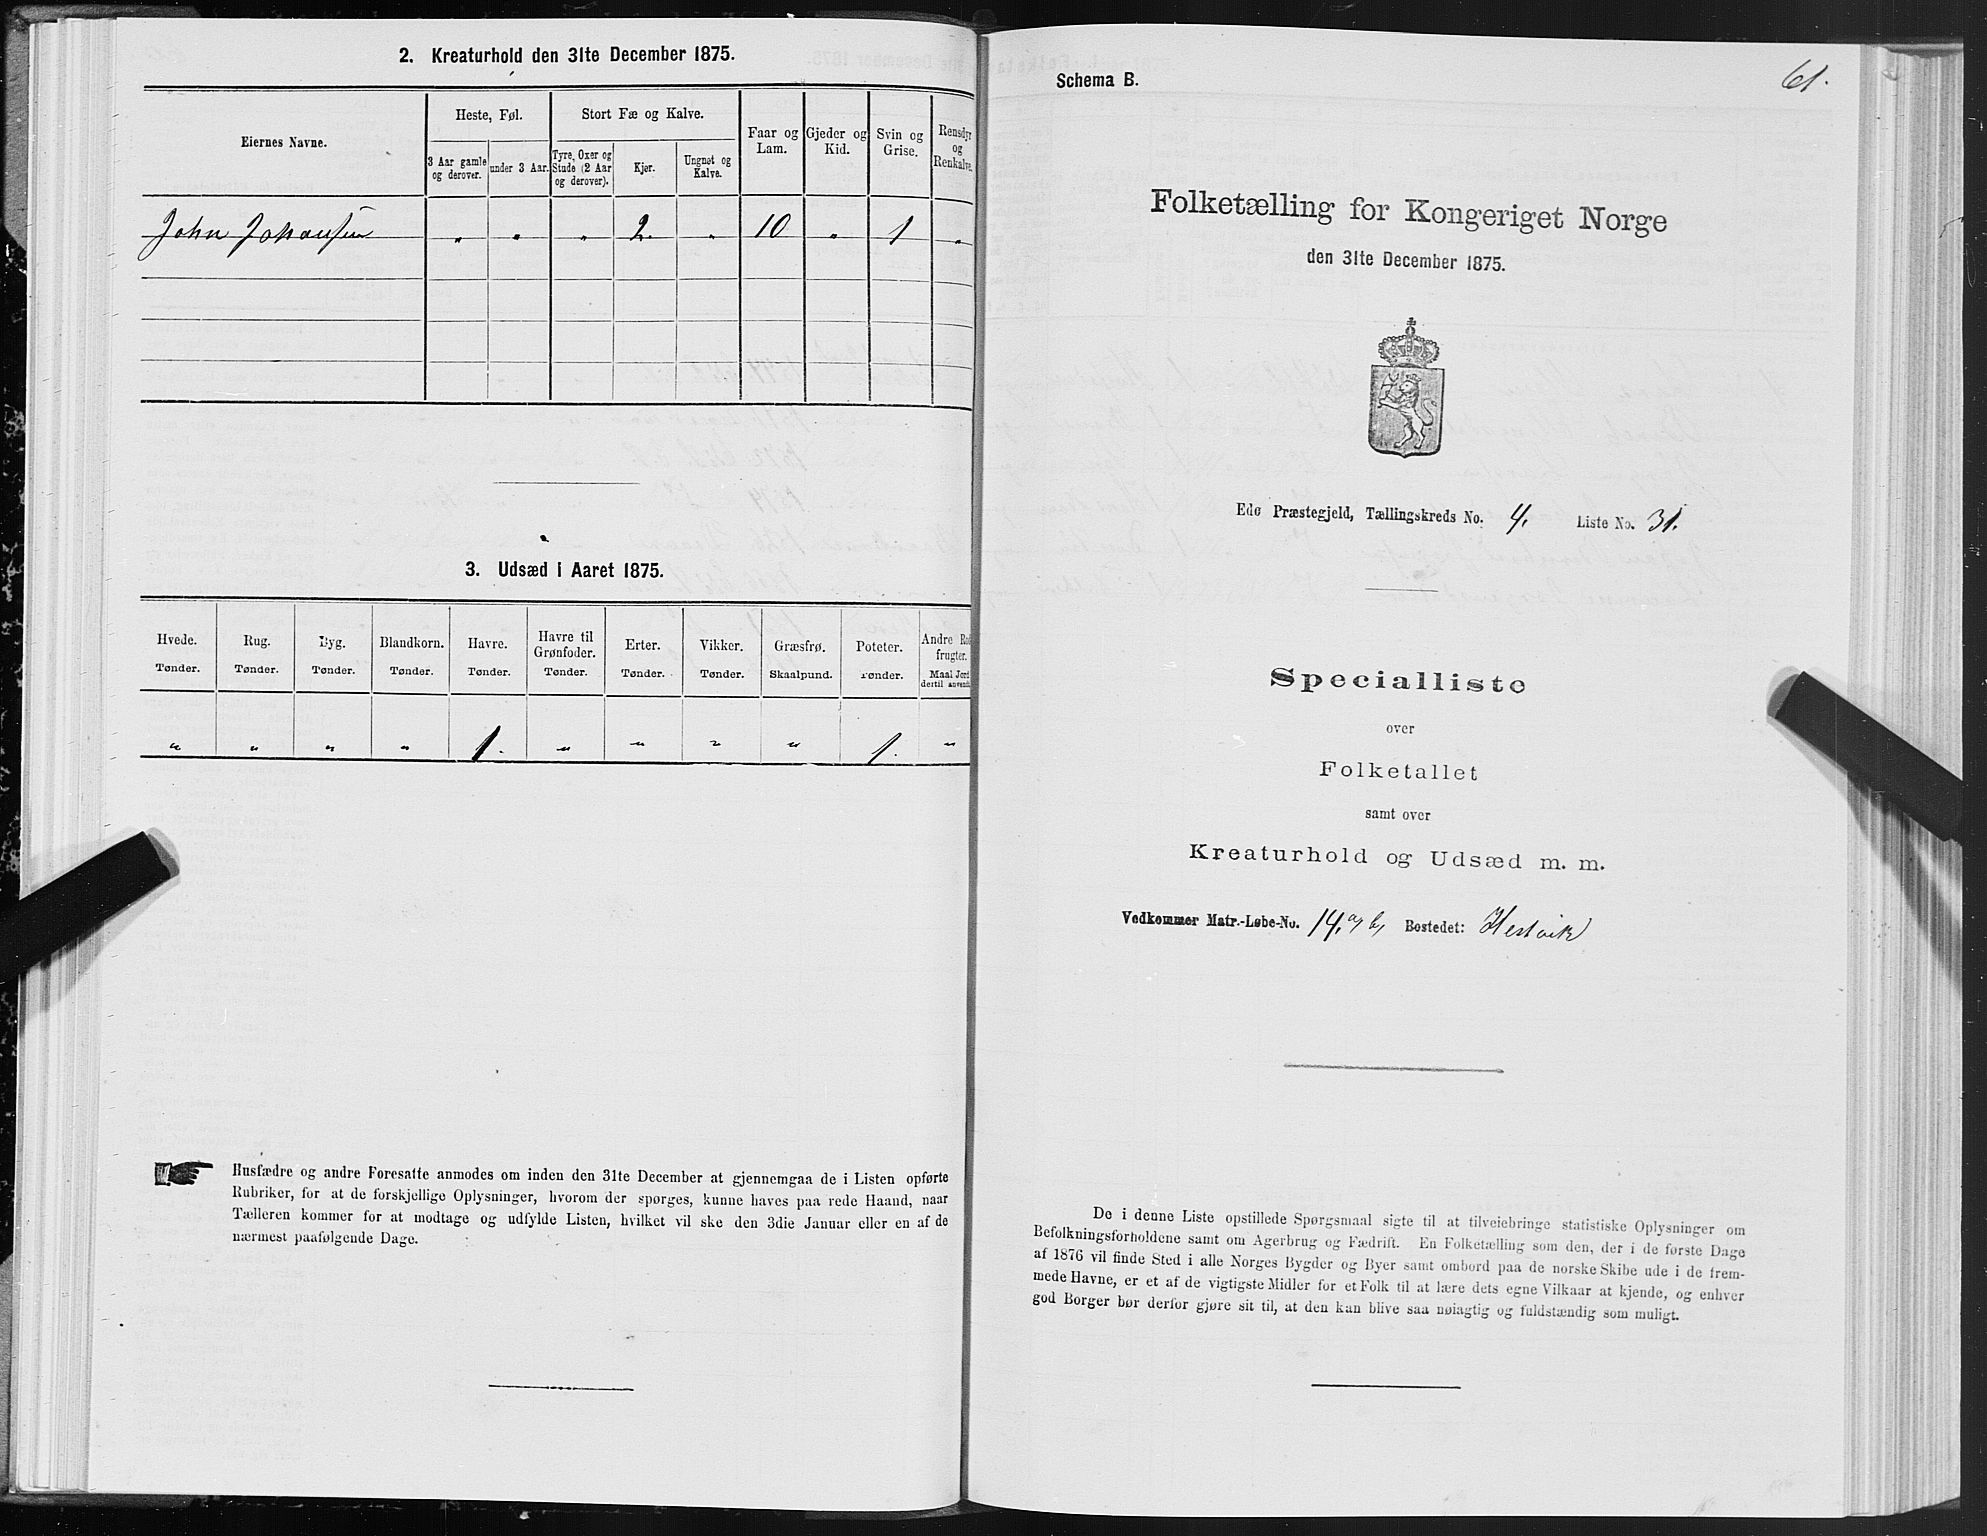 2. Kreaturhold den 31te December 1875.
Eiernes Navne.
Heste, Føl.
Stort Fæ og Kalve.
Faar og Lam.
Gjeder og Kid.
Svin og Grise.
Rensdyr og Renkalve.
3 Aar gamle og derover.
under 3 Aar.
Tyre, Oxer og Stude (2 Aar og derover).
Kjør.
Ungnøt og Kalve.
John Johansen " " " 2. " 10 " 1 "
3. Udsæd i Aaret 1875.
Hvede. Rug. Byg. Blandkorn. Havre. Havre til Grønfoder. Erter. Vikker. Græsfrø. Poteter. Andre Rod- frugter.
Tønder. Tønder. Tønder. Tønder. Tønder. Tønder. Tønder. Tønder. Skaalpund. Tønder. Maal Jord dertil anvendt
" " " " 1. " " " " 1. "
Husfædre og andre Foresatte anmodes om inden den 31te December at gjennemgaa de i Listen opførte
Rubriker, for at de forskjellige Oplysninger, hvorom der spørges, kunne haves paa rede Haand, naar
Tælleren kommer for at modtage og udfylde Listen, hvilket vil ske den 3die Januar eller en af de
nærmest paafølgende Dage.
61.
Schema B.
Folketælling for Kongeriget Norge
den 31te December 1875.
Edø Præstegjeld, Tællingskreds No. 4. Liste No. 31.
Specialliste
over
Folketallet
samt over
Kreaturhold og Udsæd m. m.
Vedkommer Matr.-Løbe-No. 14, a, b, Bostedet: Hestvik
De i denne Liste opstillede Spørgsmaal sigte til at tilveiebringe statistiske Oplysninger om
Befolkningsforholdene samt om Agerbrug og Fædrift. En Folketælling som den, der i de første Dage
af 1876 vil finde Sted i alle Norges Bygder og Byer samt ombord paa de norske Skibe ude i de frem-
mede Havne, er et af de vigtigste Midler for et Folk til at lære dets egne Vilkaar at kjende, og enhver
god Borger bør derfor gjøre sit til, at den kan blive saa nøiagtig og fuldstændig som muligt.